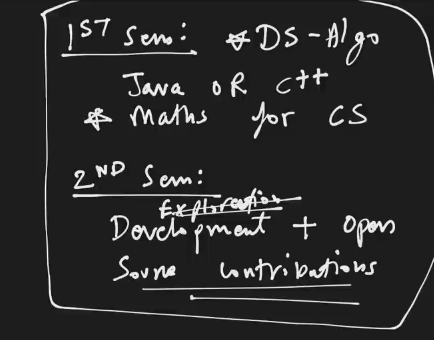 1ST Sem: * DS-Algo
Java OR C++
* Maths for CS
2ND Sem:
Exploration
Development + Open
Source contributions